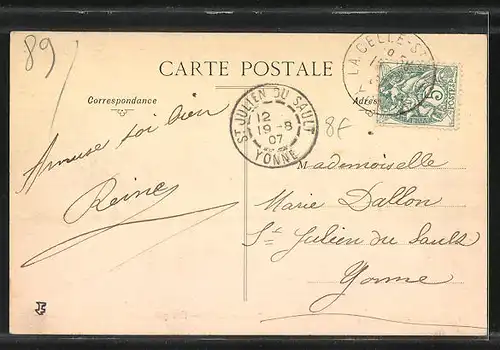 89
CARTE POSTALE
Correspondance
LA CELLE-S
ST JULIEN DU SAULT
12
19-8
07
YONNE
8F
POSTES
Amuse toi bien
Reine
Mademoiselle
Marie Dallon
St Julien du Sault
Yonne